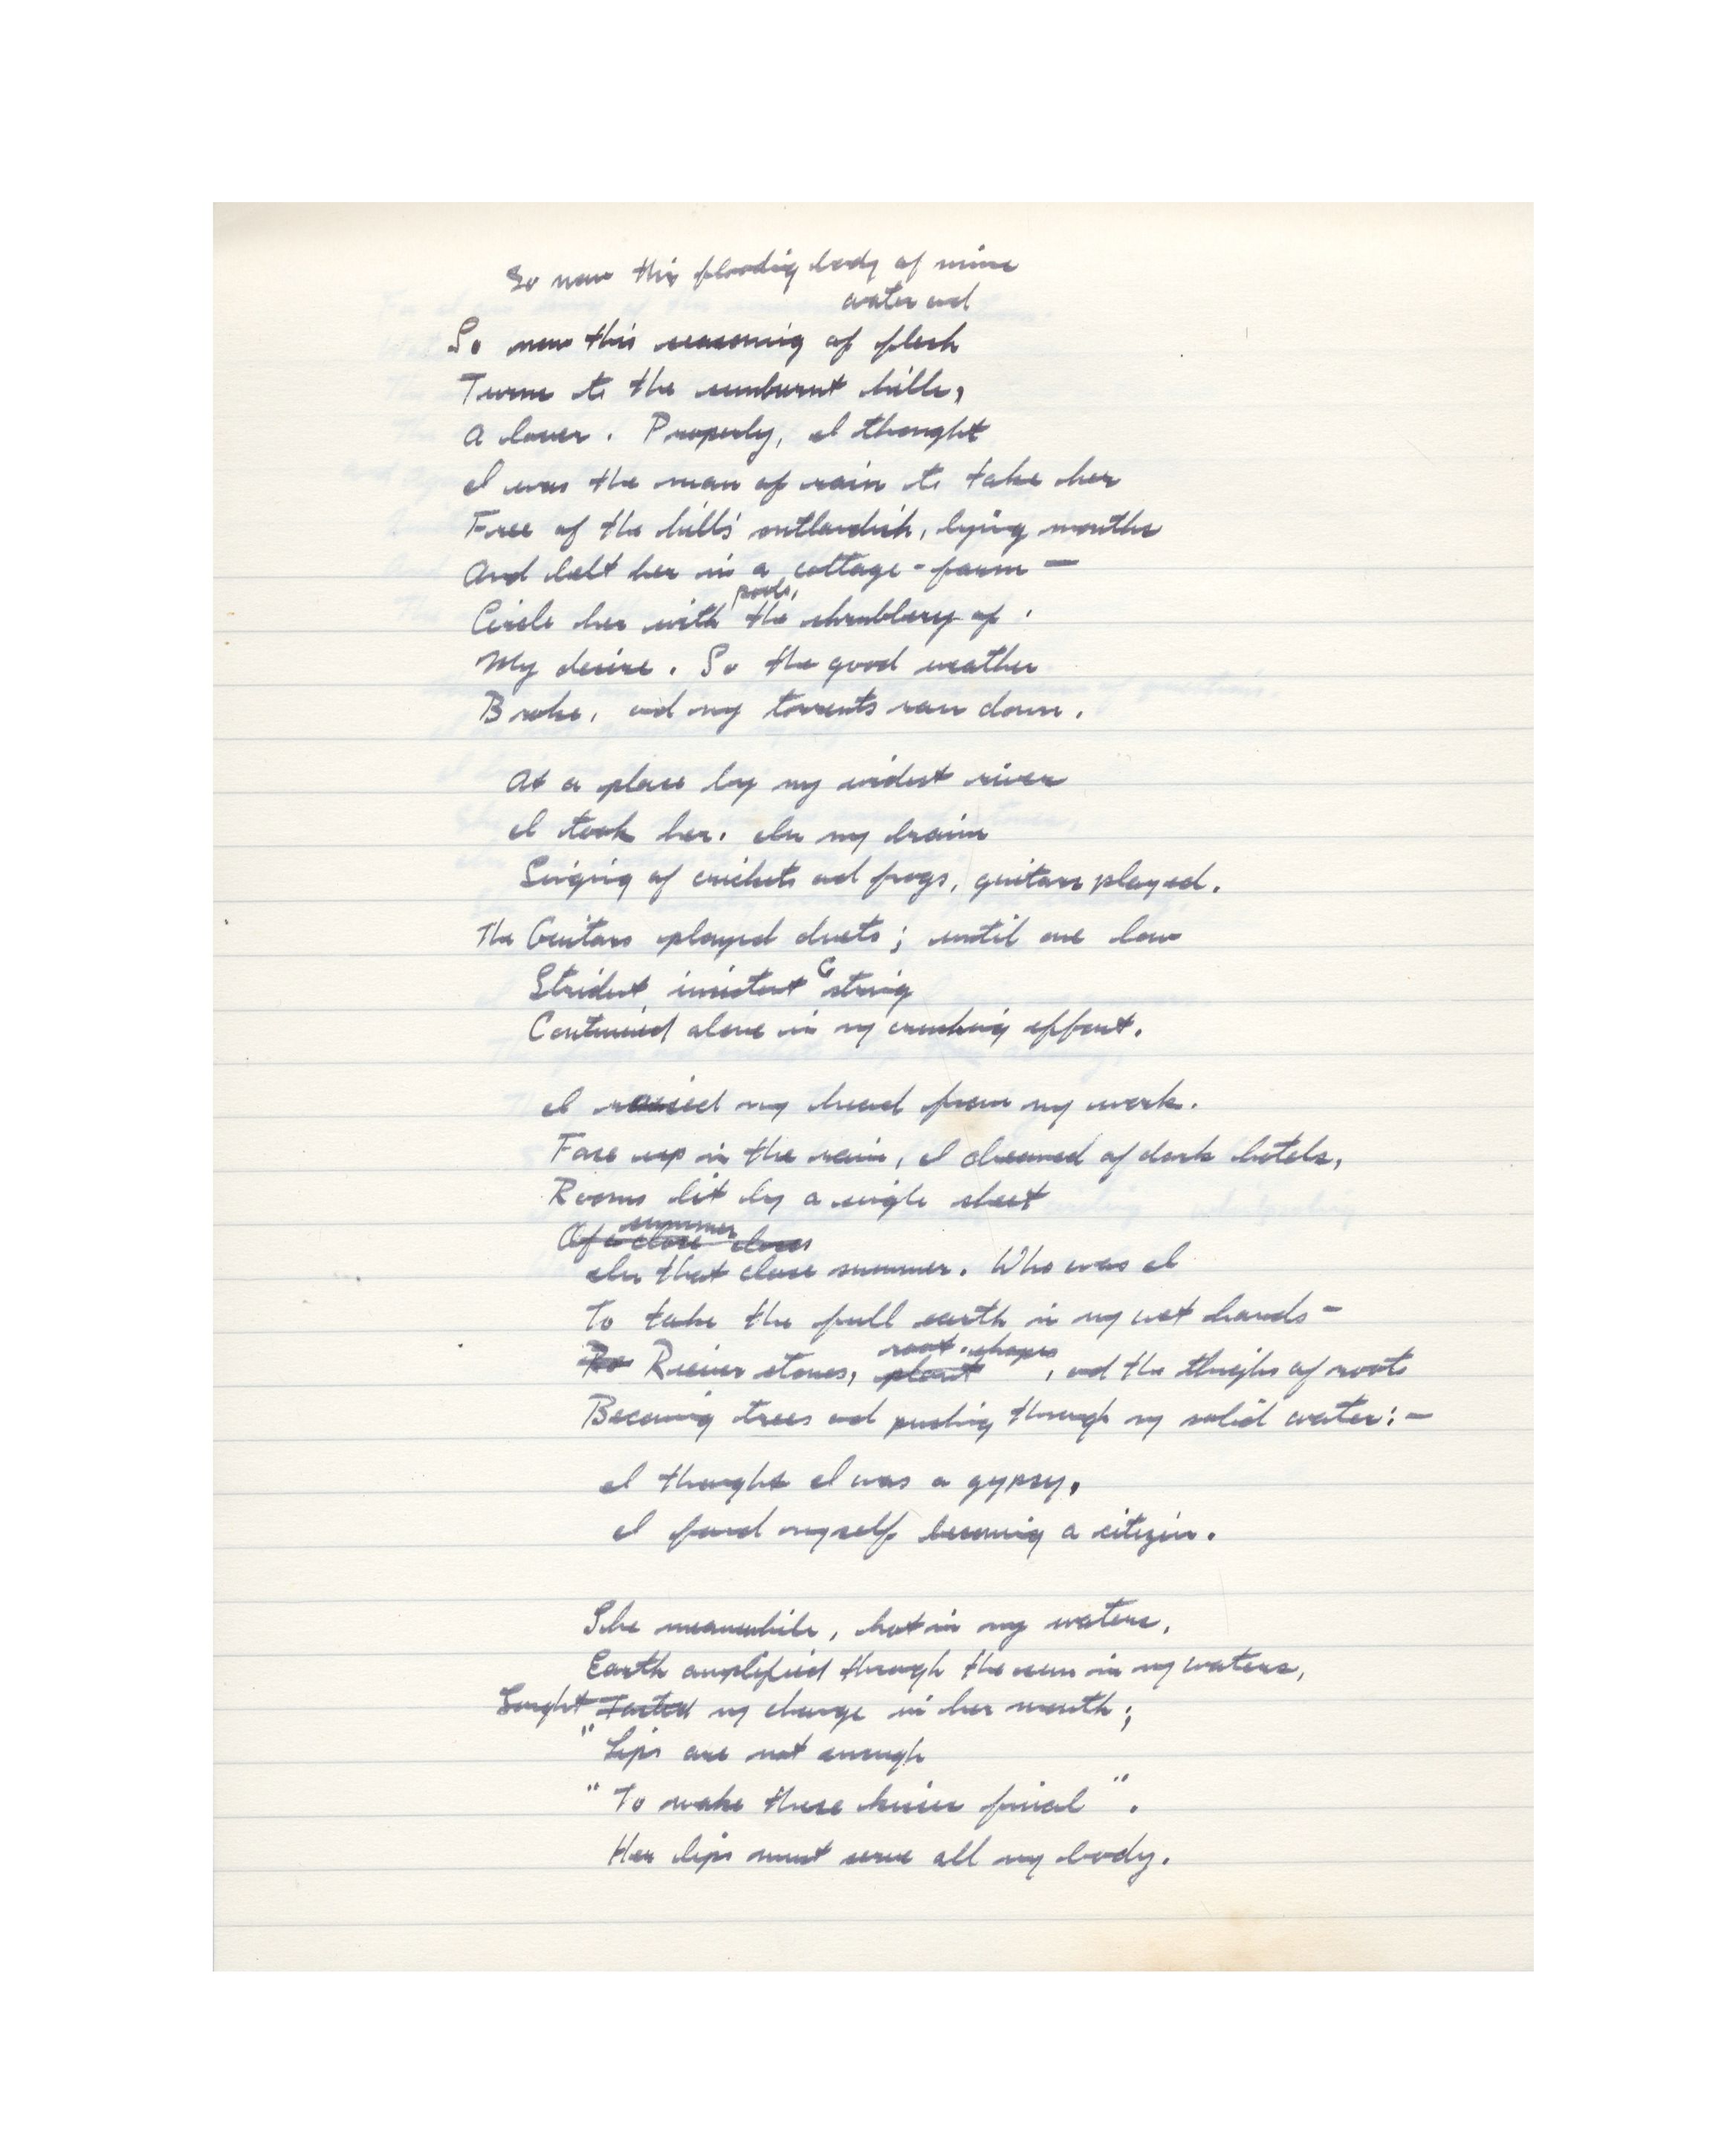 So now this flooding body of mine
water and
So now this seasoning of flesh
Turns to the sunburnt hills,
A lover. Properly, I thought
I was the man of rain to take her
Free of the hills' outlandish, lying mouths
And belt her in a cottage-farm —
pools,
Circle her with the shrubbery of
My desire. So the good weather
Broke, and my torrents ran down.
At a place by my widest river
I took her. In my brain
Singing of crickets and frogs, guitars played.
The Guitars played duets; until one low
G
Strident insistent string
Continued alone in my crushing effort.
I raised my head from my work.
Face up in the rain, I dreamed of dark hotels,
Rooms lit by a single sheet
summer
Of a close close
In that close summer. Who was I
To take the full earth in my wet hands –
root-shapes
Ro River stones, plant , and the thighs of roots
Becoming trees and pushing through my solid water: –
I thought I was a gypsy,
I found myself becoming a citizen.
She meanwhile, hot in my waters,
Earth amplified through the sun in my waters,
Sought Tasted my change in her mouth;
"Lips are not enough
"To make these kisses final".
Her lips must serve all my body.